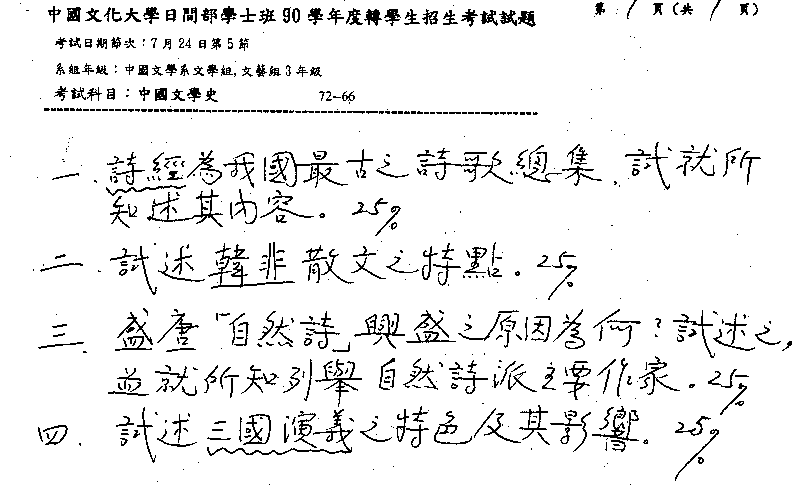 中國文化大學日間部學士班90學年度轉學生招生考試試題 第:1頁(共1頁)
考試日期節次:7月24日第5節
系組年級:中國文學系文學組,文藝組3年級
考試科目:中國文學史 72-66
一、詩經為我國最古之詩歌總集,試就所
知述其內容。25%
二、試述韓非散文之特點。25%
三、盛唐「自然詩」興盛之原因為何?試述之,
並就所知列舉自然詩派主要作家。25%
四、試述三國演義之特色及其影響。25%